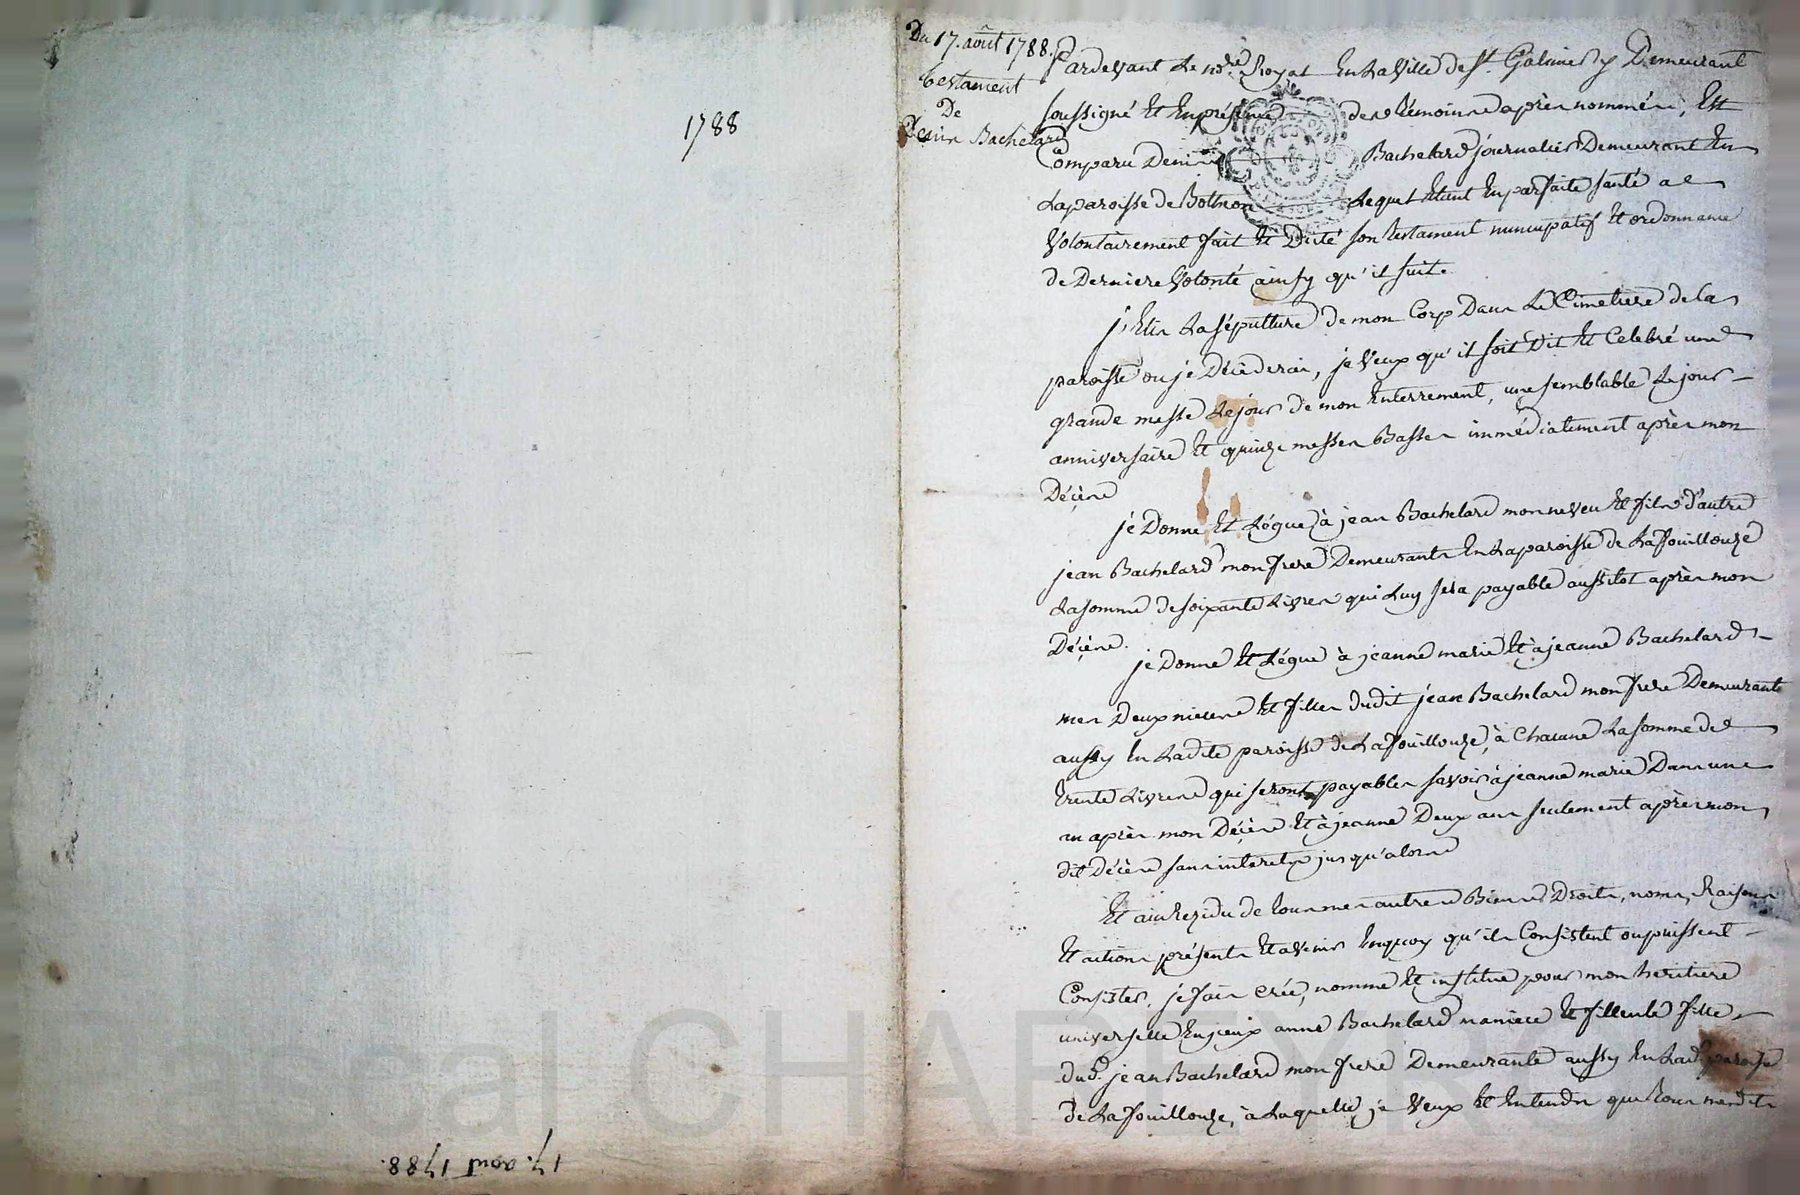 1788
17. aout 1788.
Du 17. août 1788.
testament
De
Denis Bachelard
Pardevant Le nore. Royal En La Ville de St. Galmier y Demeurant
soussigné Et En présence des témoins après nommés, Est
Comparu Denis Bachelard journalier Demeurant En
La paroisse de Bothéon Lequel Etant En parfaite santé a
Volontairement fait Et Dicté son testament nuncupatif Et ordonnance
de Derniere Volonté ainsy qu'il suit.
j'Elis La sépulture de mon Corp Dans Le Cimetiere de la
paroisse ou je Décéderai, je Veux qu'il soit Dit Et Celebré une
grande messe Le jour de mon Enterrement, une semblable Le jour
anniversaire Et quinze messes Basses immédiatement après mon
Décès
je Donne Et Légue à jean Bachelard mon neveu Et fils d'autre
jean Bachelard mon frere Demeurants En La paroisse de La fouillouze
La somme de soixante Livres qui Luy sera payable aussitot après mon
Décès.
je Donne Et Légue à jeanne marie Et à jeanne Bachelard
mes Deux nieces Et filles dudit jean Bachelard mon frere Demeurants
aussy En Ladite paroisse de La fouillouze, à Chacune La somme de
trente Livres qui seront payables savoir à jeanne marie Dans une
an après mon Décès Et à jeanne Deux ans seulement après mon
dit Décès sans interets jusqu'alors
Et au Rezidu de tous mes autres Biens Droits, noms, Raisons
Et actions présents Et avenir En quoy qu'ils Consistent ou puissent
Consister, je fais Crée, nomme Et institue pour mon heritiere
universelle anne Bachelard ma niece Et filleule fille
dud. jean Bachelard mon frere Demeurante aussy En Lad. paroisse
de La fouillouze, à Laquelle je Veux Et Entends que tous mesdits
Pascal CHAPEYRON